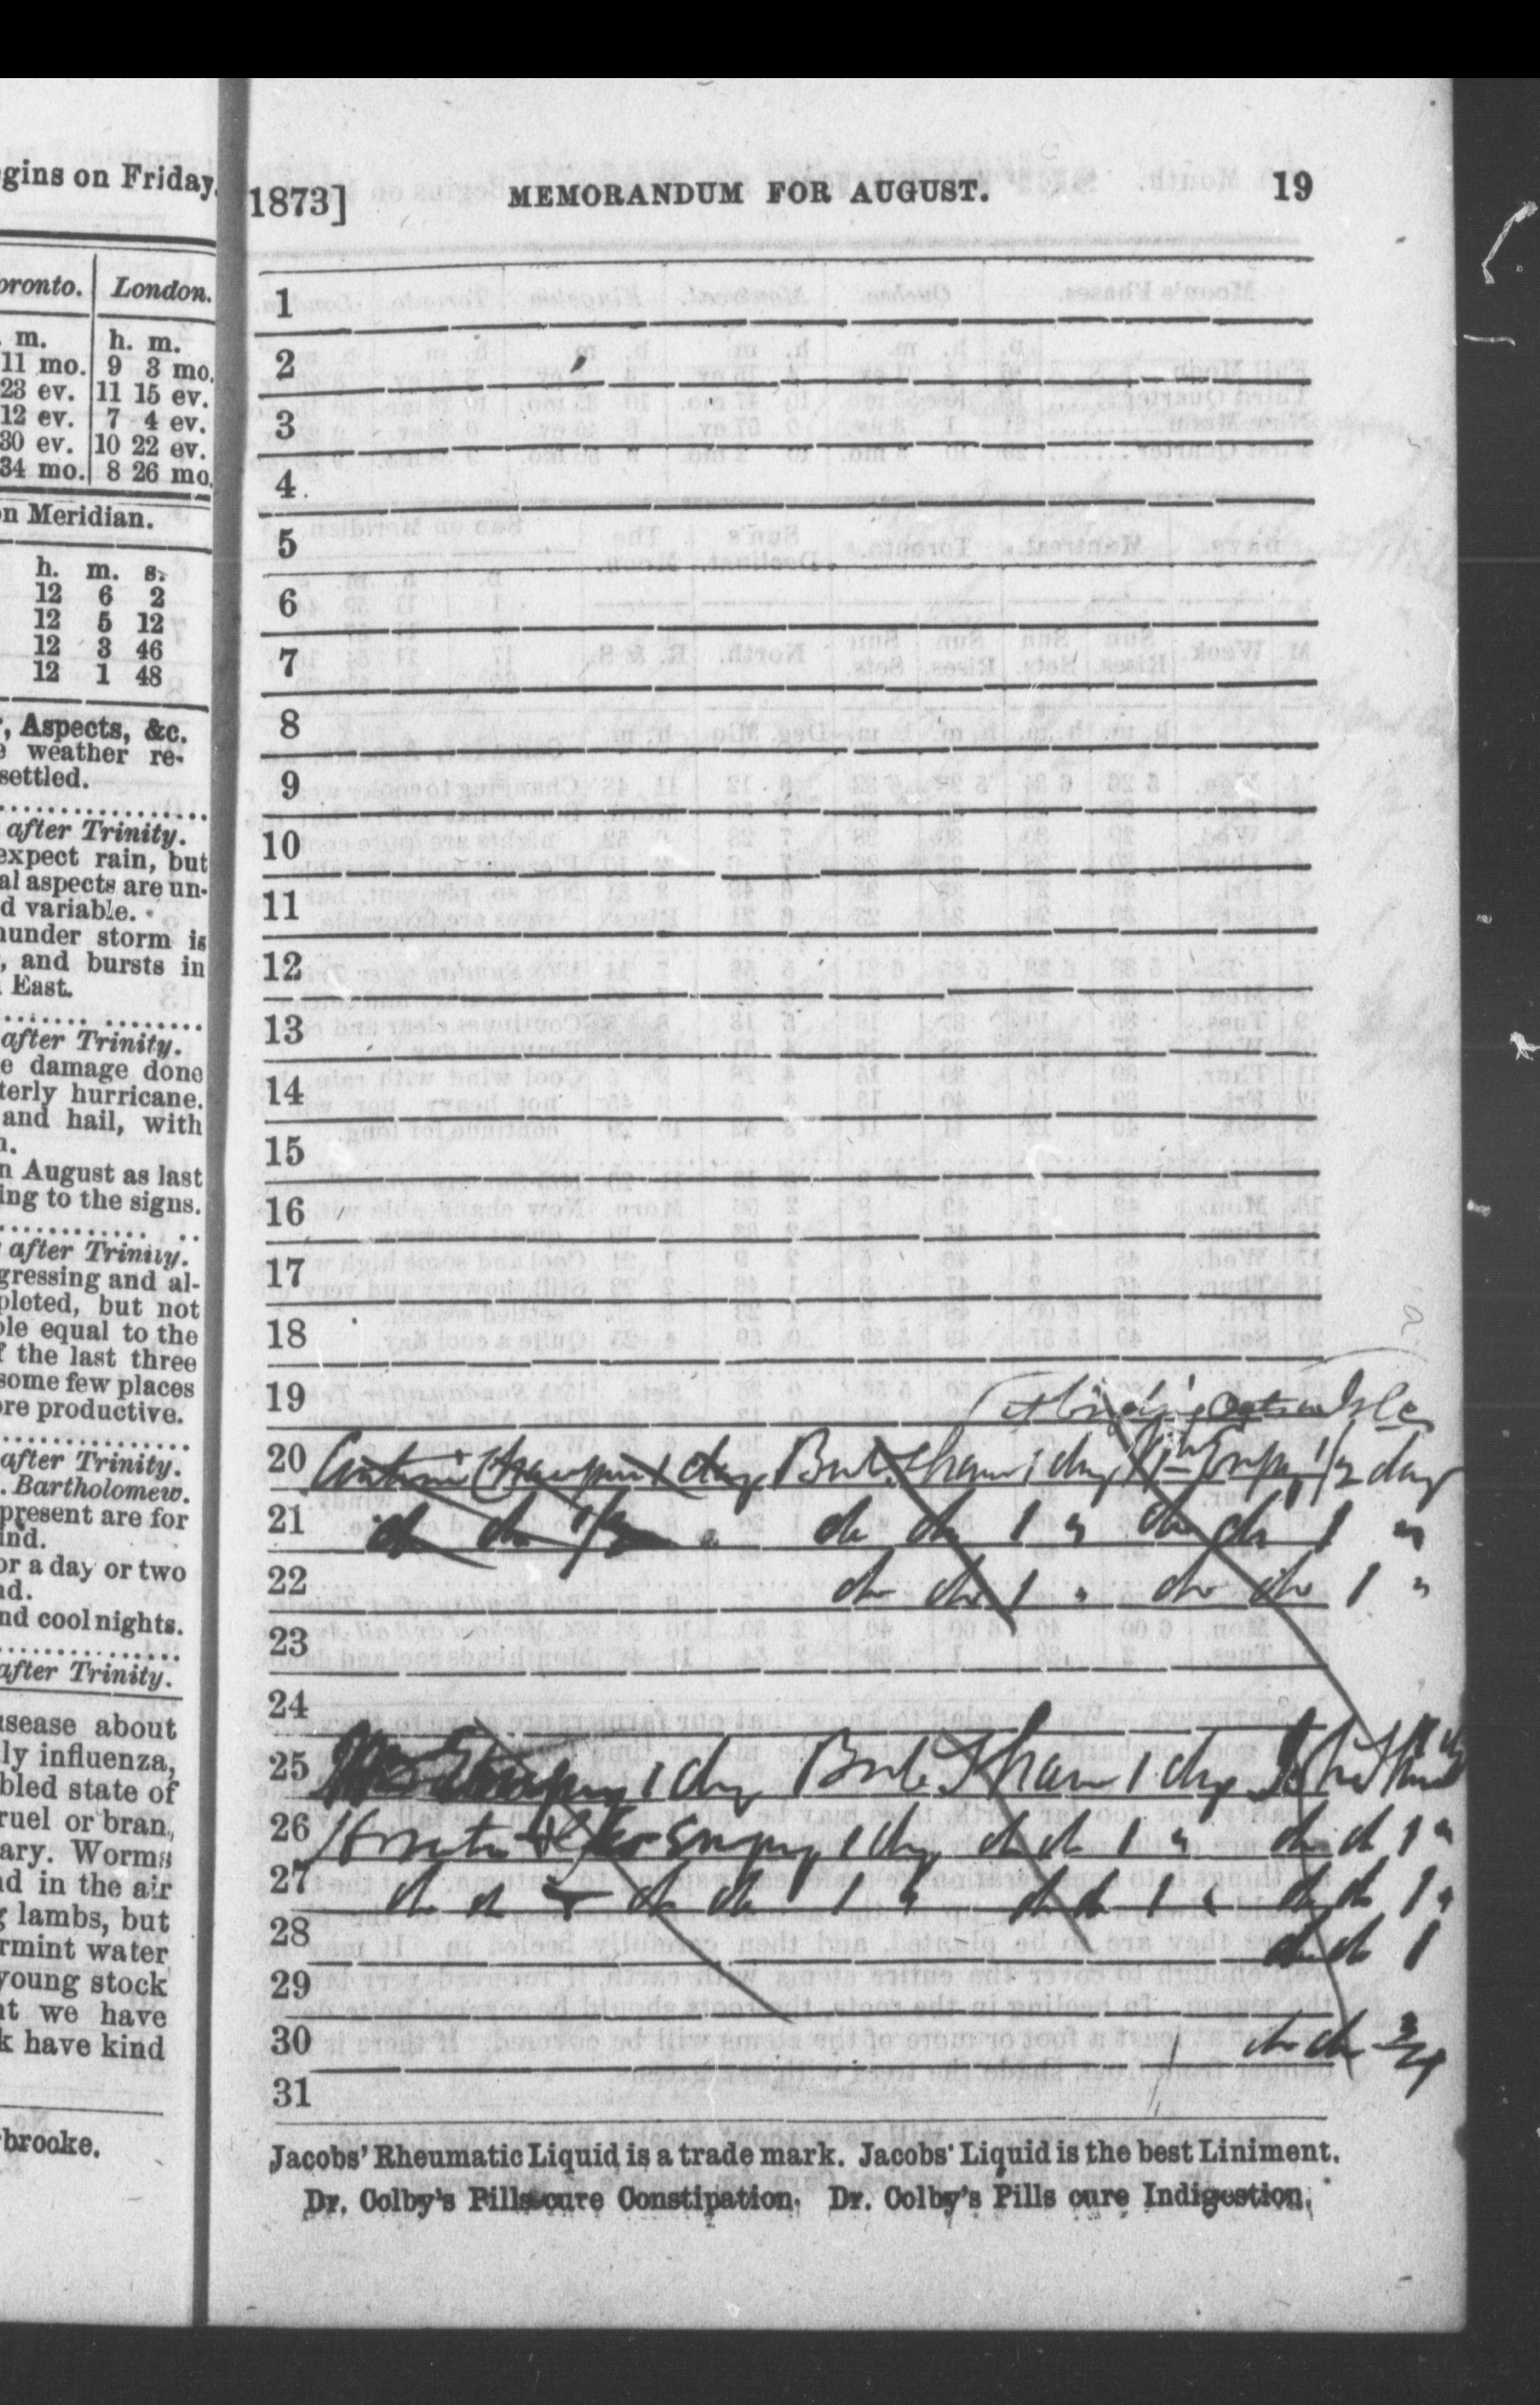 egins on Friday.
oronto. London.
. m. h. m.
11 mo. 9 3 mo.
23 ev. 11 15 ev.
12 ev. 7 4 ev.
30 ev. 10 22 ev.
34 mo. 8 26 mo.
on Meridian.
h. m. s.
12 6 2
12 5 12
12 3 46
12 1 48
, Aspects, &c.
e weather re-
settled.
after Trinity.
expect rain, but
al aspects are un-
d variable.
hunder storm is
, and bursts in
East.
after Trinity.
e damage done
terly hurricane.
and hail, with
n.
n August as last
ing to the signs.
after Trinity.
gressing and al-
pleted, but not
ble equal to the
f the last three
some few places
ore productive.
after Trinity.
. Bartholomew.
present are for
ind.
or a day or two
nd.
nd cool nights.
after Trinity.
isease about
lly influenza,
bled state of
ruel or bran,
ary. Worms
nd in the air
g lambs, but
rmint water
young stock
nt we have
k have kind
brooke.
1873] MEMORANDUM FOR AUGUST. 19
1
2
3
4
5
6
7
8
9
10
11
12
13
14
15
16
17
18
19
20 1 day 1 day 1/2 day
21 do do 1/2 do do 1 " do do 1 "
22 do do 1 " do do 1 "
23
24
25 1 day 1 day
26 1 day do do 1 " do do 1 "
27 do do & do do 1 " do do 1 " do do 1 "
28 do do 1
29
30 do do 3/4
31
Jacobs' Rheumatic Liquid is a trade mark. Jacobs' Liquid is the best Liniment.
Dr. Colby's Pills cure Constipation. Dr. Colby's Pills cure Indigestion.